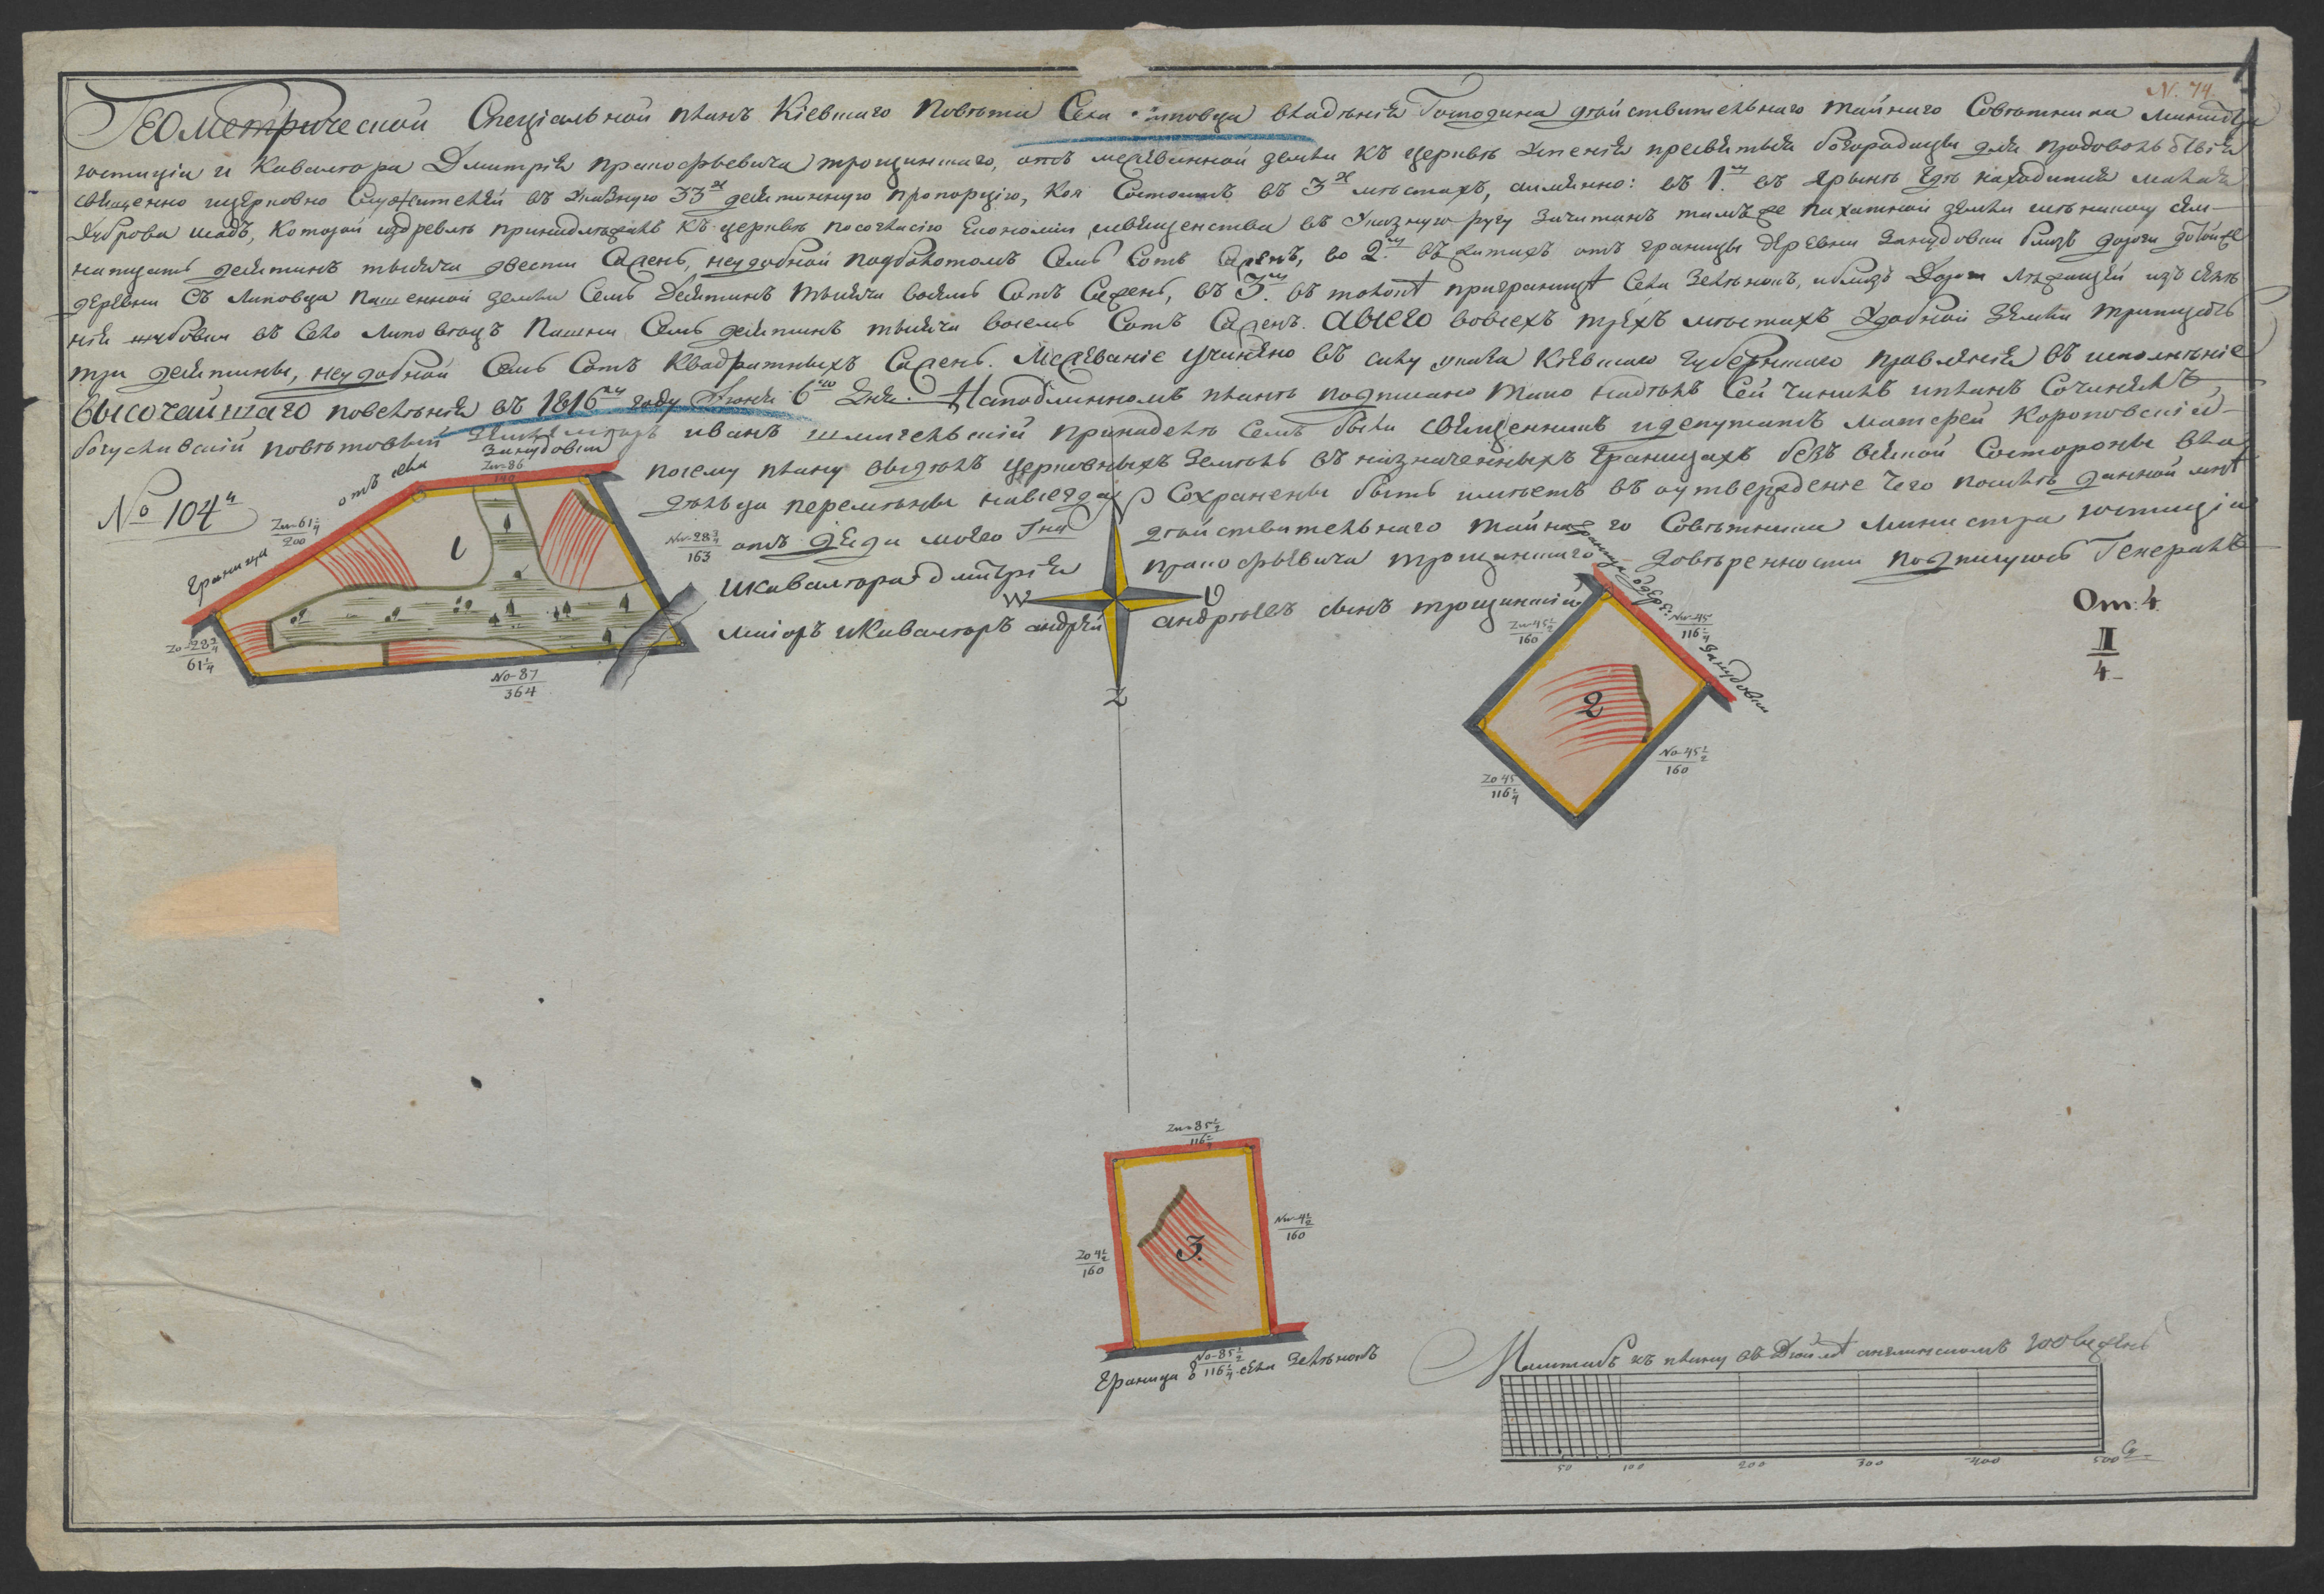 N. 74.
Геометрической Спеціальной планъ Кіевскаго Повѣта Села Липовца владѣнія Господина дѣйствительнаго тайнаго Совѣтника Министра
юстиціи и Кавалера Дмитрія Прокофьевича трощинскаго, отъ межеванной земли къ церквѣ Успенія пресвятыя богородицы для продовольствія
священно ицерковно Служителей въ Указную 33х десятинную пропорцію, коя Состоитъ въ 3х мѣстахъ, аимянно: въ 1.мъ въ
Дуброва садъ, Который издревлѣ принадлежалъ къ церквѣ посогласію Економіи священства въ Указную ругу зачитанъ тамъ же пахатной земли
надцать десятинъ тысяча двести Сажень, неудобной подболотомъ Семь Сотъ Сажень, во 2.мъ отъ границы деревни Занудовки близъ дороги
деревни Съ Липовца пашенной земли Семь Десятинъ тысяча восемь Сотъ Сажень, въ 3.мъ приграницѣ Села Зелѣнокъ, иблизъ Дороги Лежащей изъ
въ Село Липовецъ Пашни Семь десятинъ тысяча восемь Сотъ Сажень. Авсего вовсехъ трехъ мѣстахъ Удобной Земли тритцать
три десятины, неудобной Семь Сотъ Квадратныхъ Сажень. Межеваніе учинено въ силу указа Кіевскаго Губернскаго правленія въ исполнѣніе
высочайшаго повелѣнія въ 1816мъ году Іюня 6го Дня. Наподлинномъ планѣ подписано тако Надѣлъ Сей чинилъ ипланъ Сочинялъ
богуславскій повѣтовый Землемѣръ иванъ принаделѣ семъ былъ Священникъ идепутатъ матфей Короповскій
посему плану выдѣлъ церковныхъ земель въ назначенныхъ Границахъ безъ всякой Состороны вла
дѣльца перемѣны навсегда Сохраненъ быть имѣетъ въ оутвержденіе чего посилѣ данной мнѣ
отъ дяди моего Гна дѣйствительнаго тайнаго Совѣтника Министра юстиціи
икавалера дмитрія прокофьевича трощинскаго довѣренности подписуюсь Генералъ
маіоръ икавалеръ андрей андрѣевъ сынъ трощинскій
No 104й
Граница отъ села Занудовки
Zw-61¼
200
Zw-86
140
Nw-28¾
163
Zo-28¾
61¼
No-87
364
1
W
O
Z
Граница
Занудовки
Zw-45½
160
Nw-45
116¼
2
Zo 45
116¼
No-45½
160
От: 4.
II
4
Zw-85½
116¼
Nw-4½
160
Zo 4½
160
3.
No-85½
116¼
Граница села Зелѣнокъ
Масштабъ къ плану въ Дюймѣ англинскомъ 100 сажень
50 100 200 300 400 500 С.